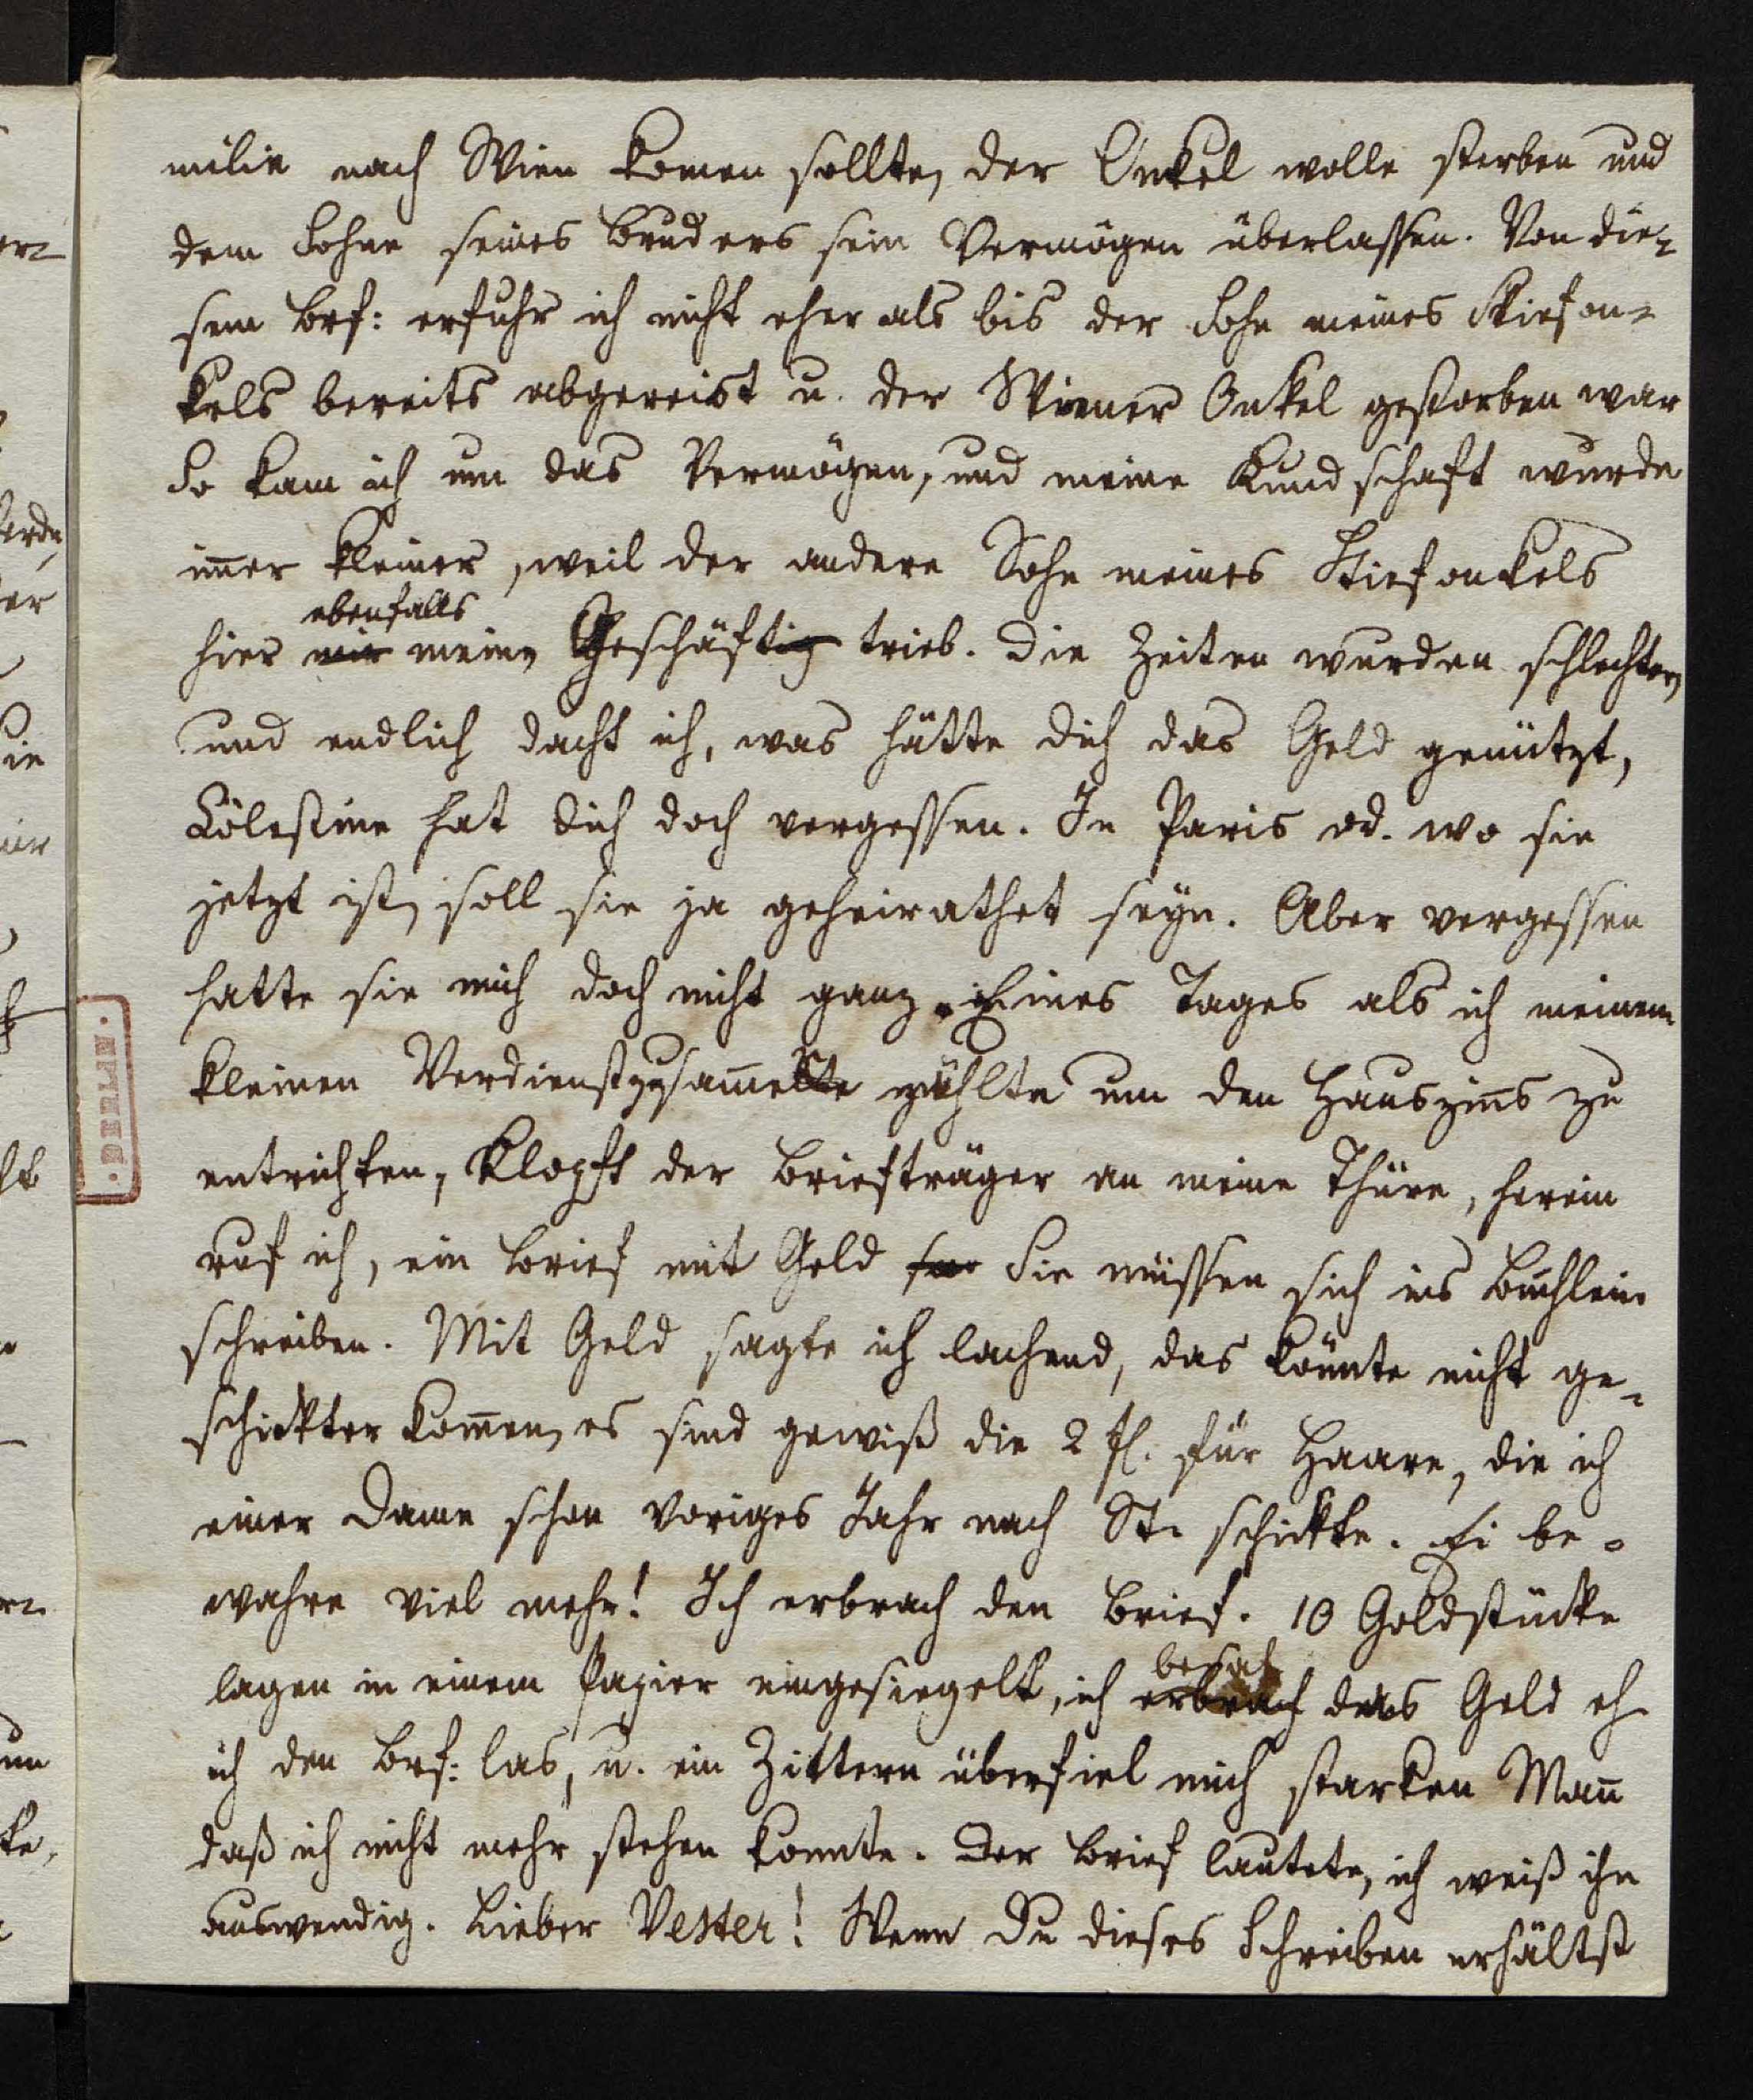 milie nach Wien komen sollte, der Onkel wolle sterben und
dem Sohne seines Bruders sein Vermögen überlassen. Von die-
sem Brf: erfuhr ich nicht eher als bis der Sohn meines Stiefon-
kels bereits abgereist u. der Wiener Onkel gestorben war
So kam ich um das Vermögen, und meine Kundschaft wurde
im̄er kleiner, weil der andere Sohn meines Stiefonkels
ebenfalls
hier mir meine Geschäftig trieb. Die Zeiten wurden schlechter,
und endlich dacht ich, was hätte dich das Geld genützt,
Cölestine hat dich doch vergessen. In Paris od. wo sie
jetzt ist, soll sie ja geheirathet seyn. Aber vergessen
hatte sie mich doch nicht ganz. Eines Tages als ich meinen
kleinen Verdienst zusam̄ zählte um den Hauszins zu
entrichten, klopft der Briefträger an meine Thüre, herein
ruf ich, ein Brief mit Geld Sie müssen sich ins Büchlein
schreiben. Mit Geld sagte ich lachend, das könnte nicht ge-
schickter kom̄en, es sind gewiß die 2 fl. für Haare, die ich
einer Dame schon voriges Jahr nach St. schickte. Ei be-
wahre viel mehr! Ich erbrach den Brief. 10 Goldstücke
besah
lagen in einem Papier eingesiegelt, ich erbrach das Geld eh
ich den Brf: las, u. ein Zittern überfiel mich starken Man̄
daß ich nicht mehr stehen konnte. Der Brief lautete, ich weiß ihn
auswendig. Lieber Vetter! Wenn Du dieses Schreiben erhältst
BERLIN.